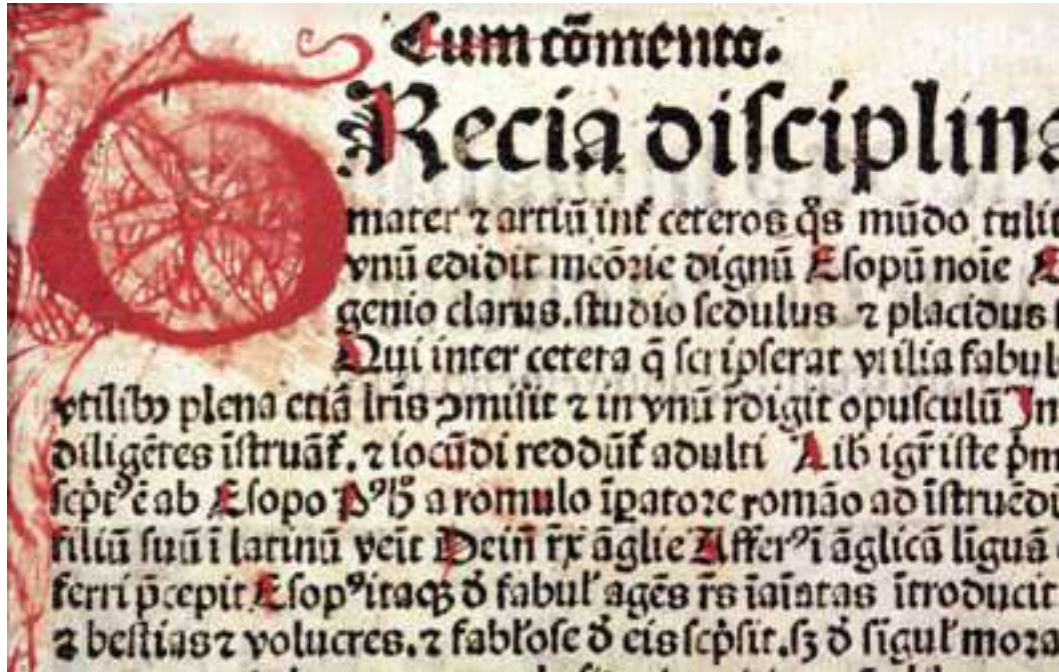 Cum cōmento.
GRecia diſciplina
mater ⁊ artiū int̄ ceteros q̄s mūdo tuli
vnū edidit meōrie dignū Eſopū noīe
genio clarus. ſtudio ſedulus ⁊ placidus
Qui inter cetera q̄ ſcripſerat vtilia fabul
vtilibꝰ plena etiā lr̄is ꝯmiſit ⁊ in vnū rdigit opuſculū In
diligētes īſtruāt̄. ⁊ iocūdi reddūt̄ adulti Lib igr̄ iſte pm
ſcpt᷒ ē ab Eſopo Pꝰ hꝰ a romulo īꝑatoꝛe romāo ad īſtruēdū
filiū ſuū ī latinū veīt Dein̄ rx̄ āglie Affer᷒ ī āglicā līguā
ferri p̄cepit Eſop᷒ itaqꝫ đ fabul̄ agēs rs̄ īaīatas ītroducit
⁊ beſtias ⁊ volucres. ⁊ fabl̄oſe đ eis ſcpſit. ſꝫ đ ſigul̄ moꝛa